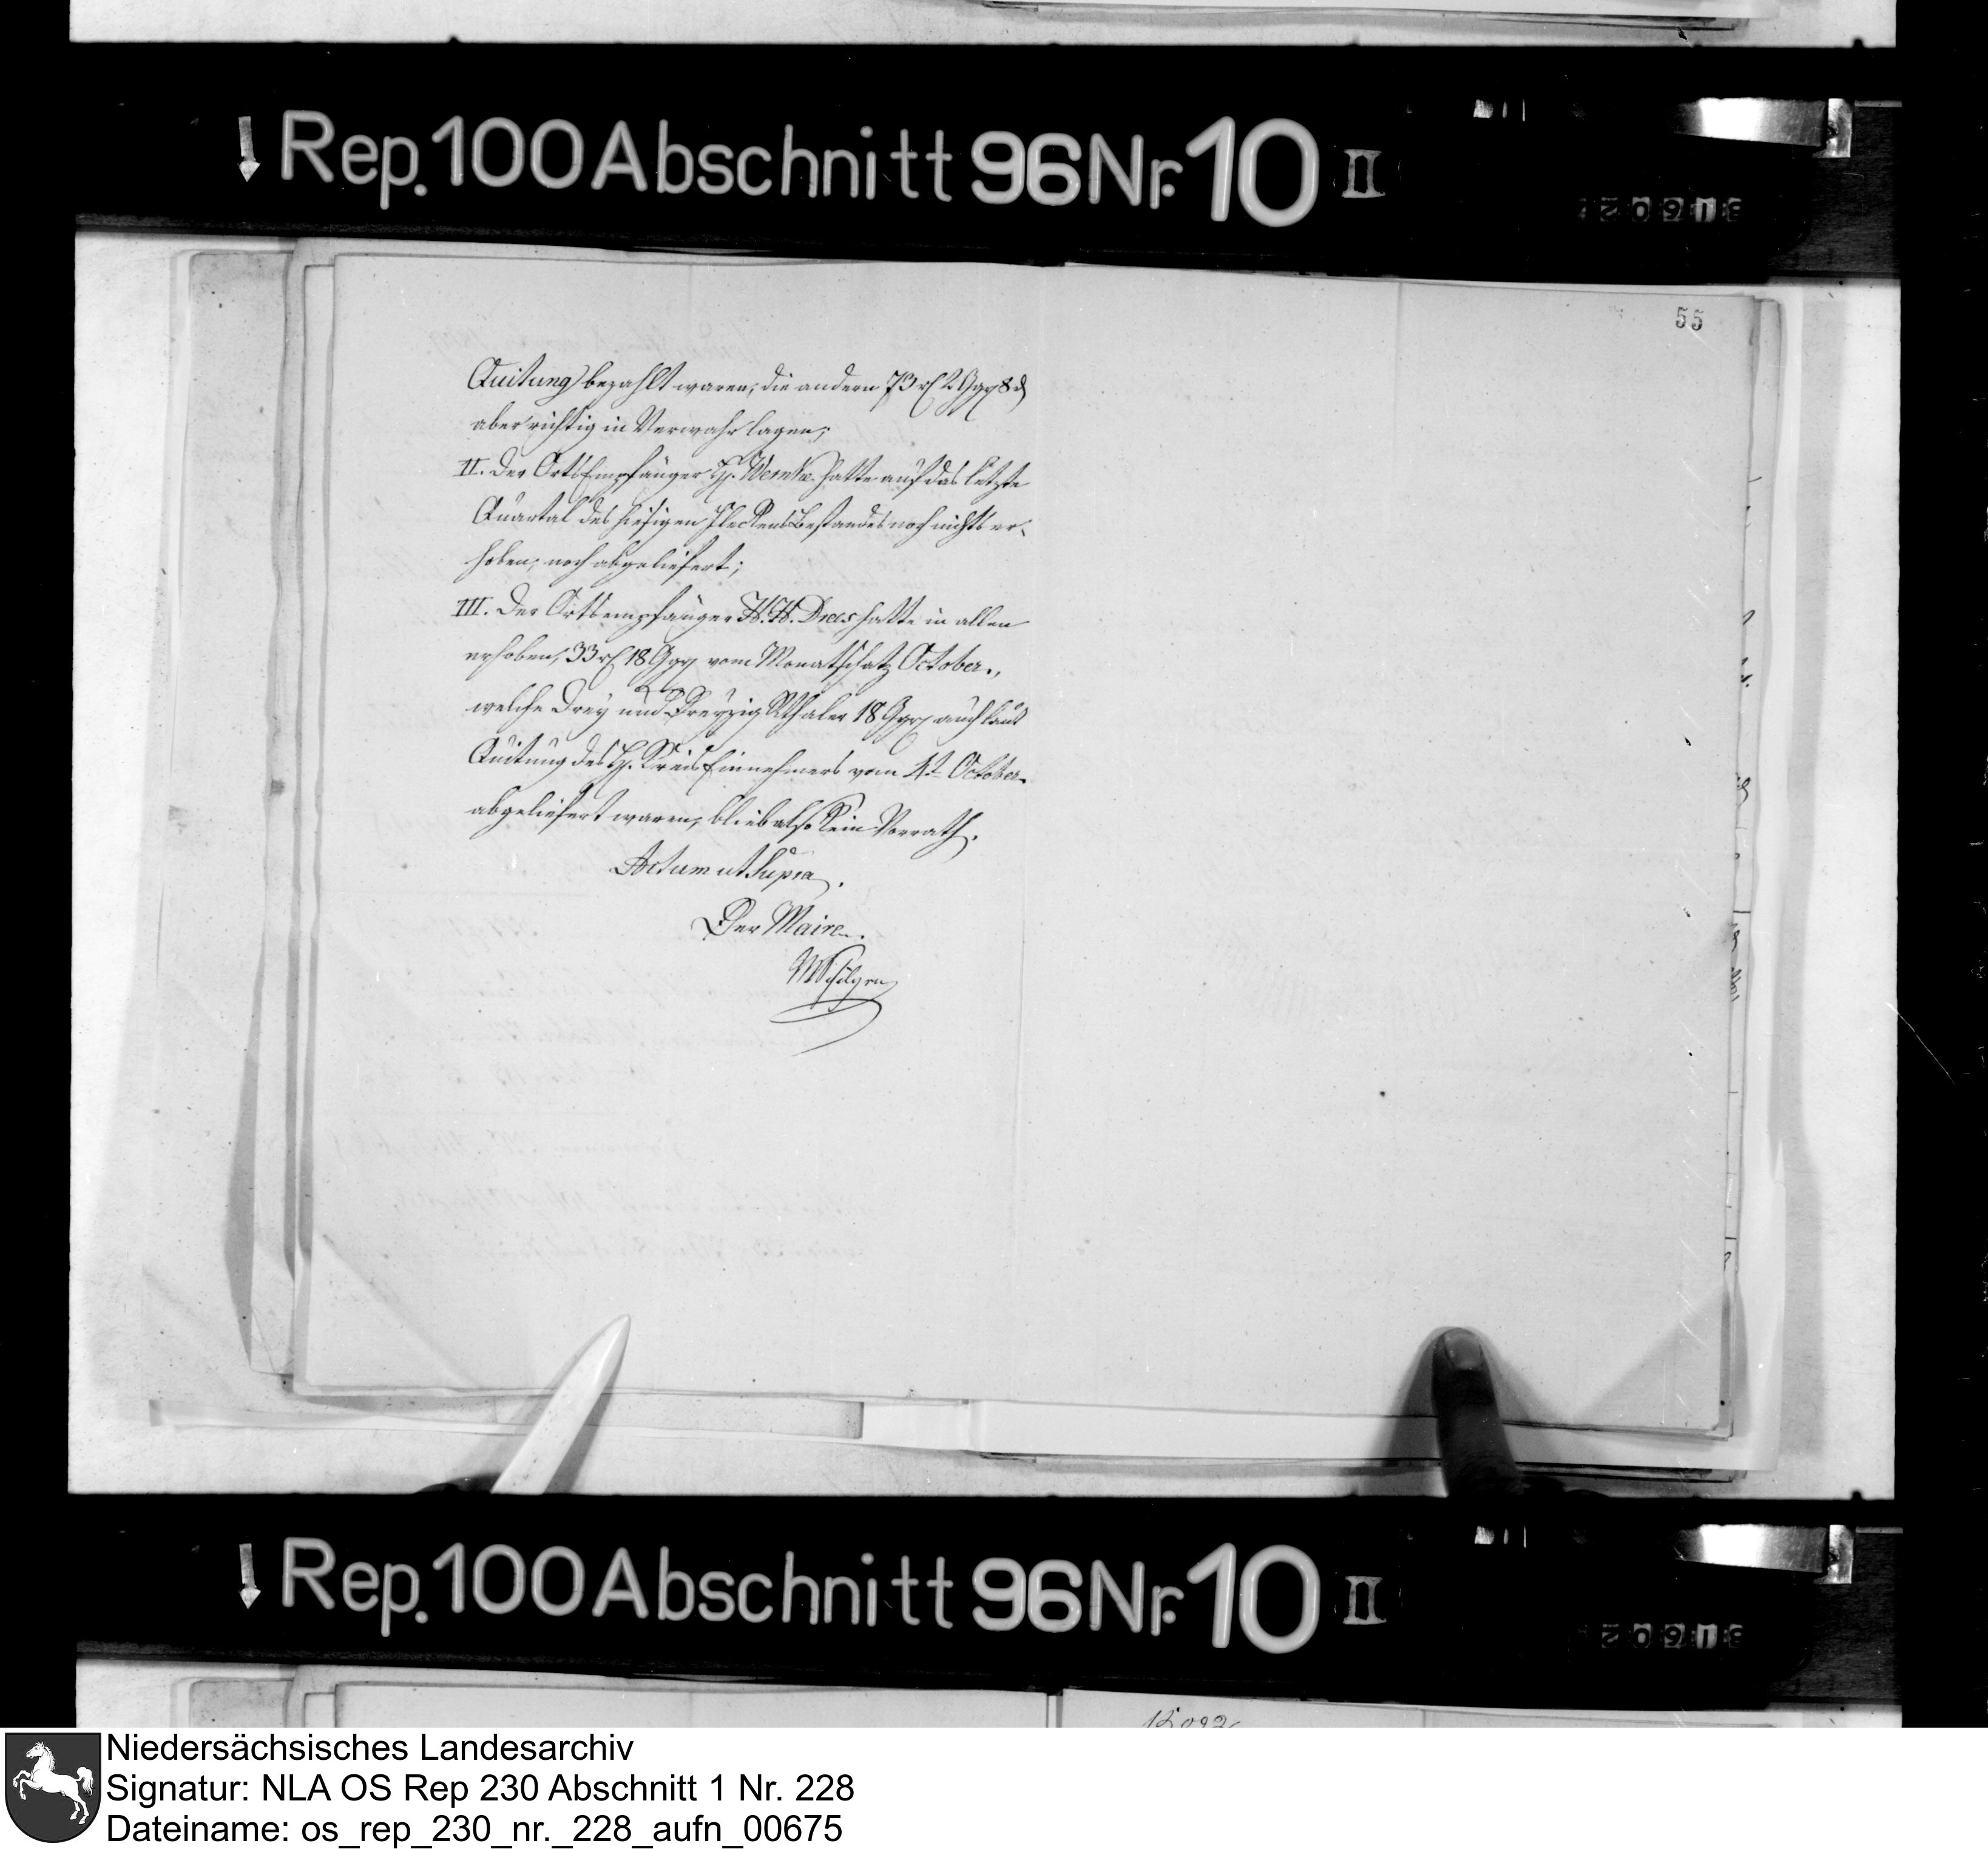 Rep. 100 Abschnitt 96 Nr. 10 II
55
Quitung bezahlt waren, die andern 73 rt 2 Ggr 8 d
aber richtig in Verwahr lagen;
II. Der OrtsEmpfänger H. Wernke hatte auf das letzte
Quartal des hiesigen Fleckens Bestandes noch nichts er-
hoben, noch abgeliefert;
III. Der Ortsempfänger H. H. Drees hatte in allen
erhoben, 33 rt 18 Ggr vom Monatschatz October.,
welche Drey und Dreyzig Rthaler 18 Ggr auch laut
Quitung des H. Kreis Einnehmers vom 4t October
abgeliefert waren, blieb also kein Vorrath.
Actum ut Supra.
Der Maire.
Rep. 100 Abschnitt 96 Nr. 10 II
Niedersächsisches Landesarchiv
Signatur: NLA OS Rep 230 Abschnitt 1 Nr. 228
Dateiname: os_rep_230_nr._228_aufn_00675